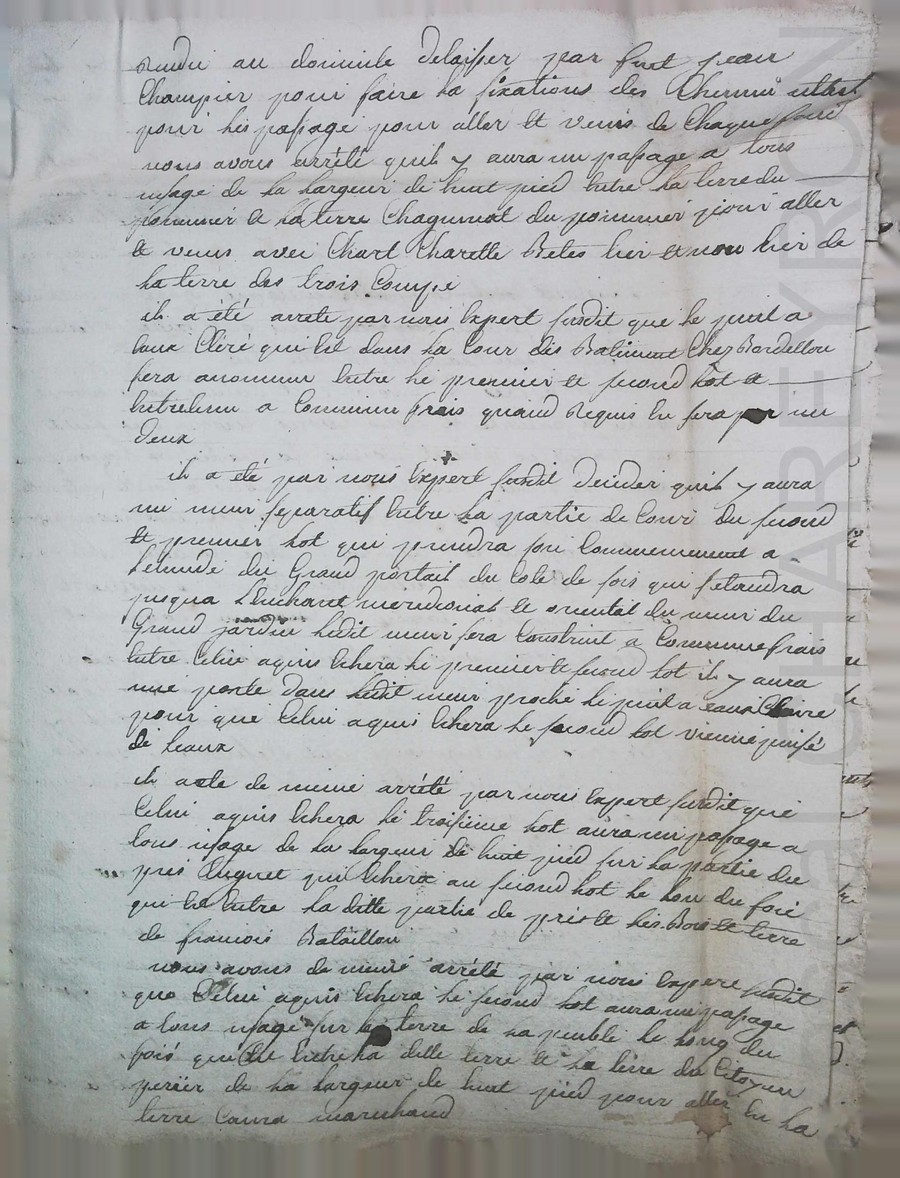 rendu au domicile delaisser par feut jean
Champier pour faire la fixations des Chemin utiles
pour les passage pour aller et venir de Chaque
nous avons arrêté quil y aura un passage a tous
usage de la largeur de huit pied entre la terre du
pommier et la terre Chagumat du pommier pour aller
et venir avec Chart Charette Betes lier et non lier de
la terre des trois Coupe
il a été arreté par nous Expert susdit que le puit a
eaux Clère qui est dans la Cour des Batiment Chez Bardellou
sera anommun entre le premier et second lot et
entretenu a Commun frais quand Requis en sera par un
deux
il a été par nous Expert susdit Decider quil y aura
un mur separatif entre la partie de Cour du second
et premier lot qui prendra son Commencement a
du Grand portail du Coté de qui setandra
jusqua Lenchant meridional et oriental du meur du
Grand jardin ledit meur sera Construit a Commune frais
entre Celui aquis Echera le premier et second lot il y aura
une porte dans ledit meur proche le puit a eaux Claire
pour que Celui aquis Echera le second lot vienne puisé
de leaux
il a ete de meme arrété par nous Expert susdit que
Celui aquis Echera le troisieme lot aura un passage a
tous usage de la largeur de huit pied sur la partie du
pres qui Echera au second lot le lon du
qui est entre la ditte partie de pres et les Bois et terre
de francois Bataillon
nous avons de meme arrété par nous Expere susdit
que Celui aquis Echera le second lot aura un passage
a tous usage sur la terre de la peuble le long du
fosé qui est Entre la ditte terre et la terre du Citoyen
perier de la largeur de huit pied pour aller en la
terre marchand
CHAREYRON